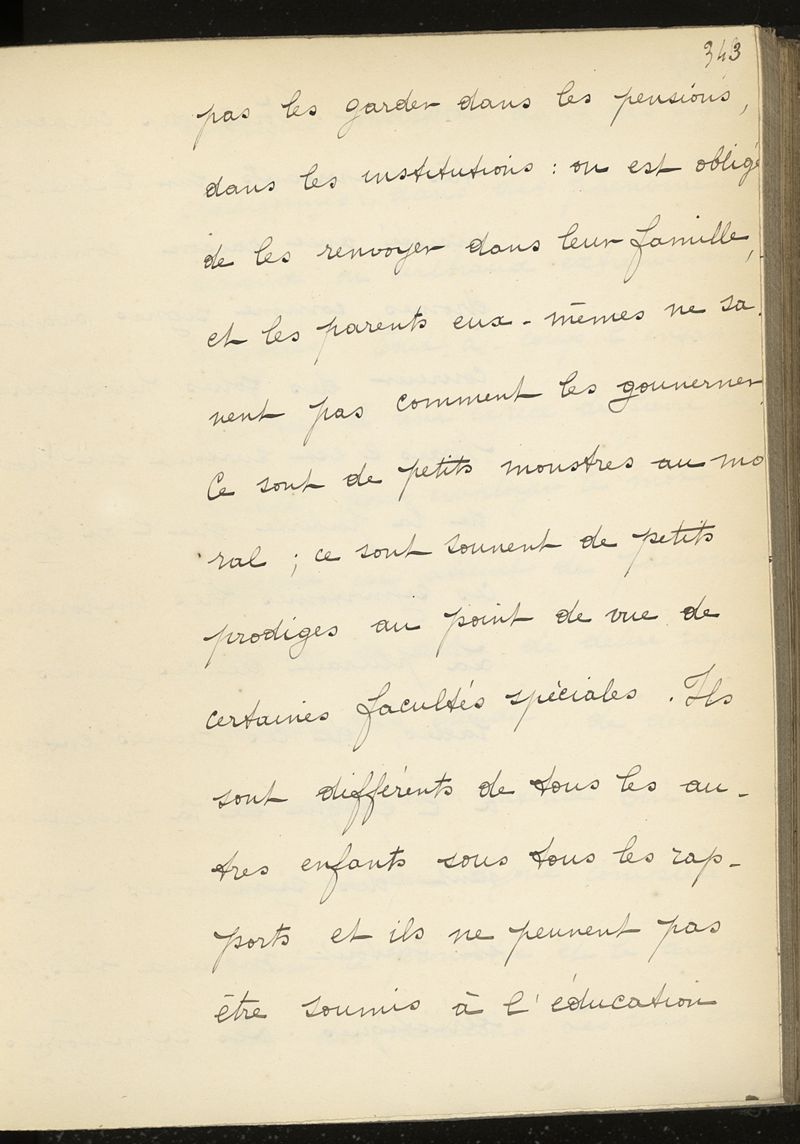 343
pas les garder dans les pensions,
dans les institutions : on est obligé
de les renvoyer dans leur famille,
et les parents eux-mêmes ne sa-
vent pas comment les gouverner.
Ce sont de petits monstres au mo
ral ; ce sont souvent de petits
prodiges au point de vue de
certaines facultés spéciales. Ils
sont différents de tous les au-
tres enfants sous tous les rap-
ports et ils ne peuvent pas
être soumis à l'éducation